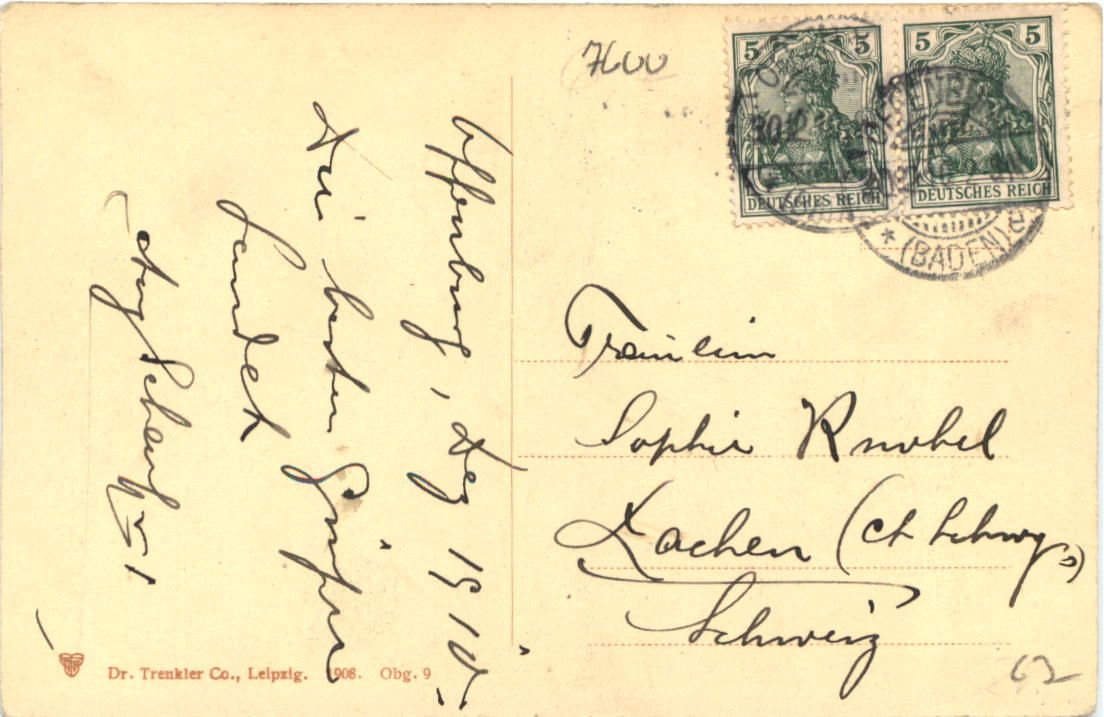 7600
5 5 5 5
DEUTSCHES REICH DEUTSCHES REICH
(BADEN) e
Offenburg, Dez 1910.
Die besten Grüße
sendet
Aug
Fräulein
Sophie Knobel
Lachen (Ct. Schwyz)
Schweiz
Dr. Trenkler Co., Leipzig. 1908. Obg. 9
63